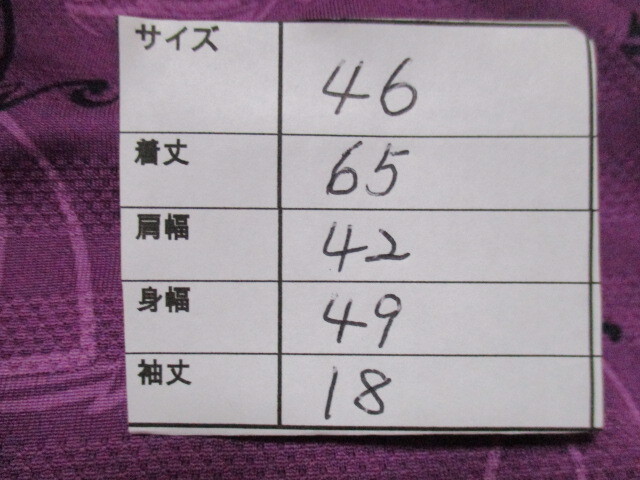 サイズ 46
着丈 65
肩幅 42
身幅 49
袖丈 18